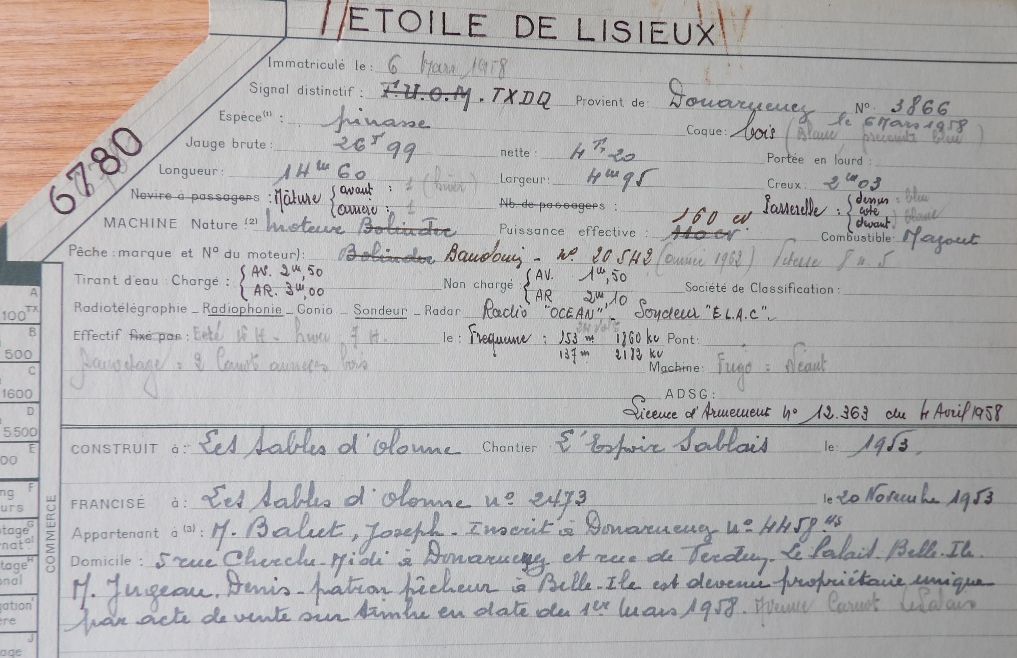 ETOILE DE LISIEUX
6780
Immatriculé le : 6 Mars 1958
Signal distinctif : F.U.O.M. TXDQ Provient de : Douarnenez N° 3866
le 6 Mars 1958
Espèce (1) : pinasse Coque : bois (Blanc, préceinte bleu)
Jauge brute : 26 Tx 99 nette : 4 Tx 20 Portée en lourd :
Longueur : 14 m 60 Largeur : 4 m 95 Creux : 2 m 03
Navire à passagers : Mâture { avant : 1 (hiver) Nb. de passagers : Passerelle : { dessus : bleu
arrière : 1 160 cv côté : blanc
devant :
MACHINE Nature (2) moteur Bolinder Puissance effective : 110 cv Combustible : Mazout
Pêche : marque et N° du moteur) : Bolinder Baudouin - N° 205H2 (année 1962) Vitesse 8 n. 5
Tirant d'eau : Chargé : { AV. 2m,50 Non chargé { AV. 1m,50 Société de Classification :
AR. 3m,00 AR 2m,10
Radiotélégraphie - Radiophonie - Gonio - Sondeur - Radar Radio "OCEAN" - Sondeur "E.L.A.C".
Effectif fixé par : Eté 10 H - hiver 7 H. le : Fréquence : 153 m 1960 kc Pont :
137 m 2182 kc
Sauvetage : 2 Canot annexes bois Machine : Frigo : Néant
ADSG :
Licence d'Armement N° 12.363 du 4 Avril 1958
CONSTRUIT à : Les Sables d'Olonne Chantier L'Espoir Sablais le : 1953.
FRANCISÉ à : Les Sables d'Olonne n° 2473 le 20 Novembre 1953
Appartenant à (3) : M. Balut, Joseph. Inscrit à Douarnenez n° 4458
Domicile : 5 rue Cherche-Midi à Douarnenez et rue de Verdun, Le Palais. Belle-Ile.
M. Jugeau, Denis - patron pêcheur à Belle-Ile est devenu propriétaire unique
par acte de vente sur timbre en date du 1er Mars 1958. Avenue Carnot Le Palais
A
100 TX
B
500
C
1600
D
5500
E
F
G
H
J
COMMERCE